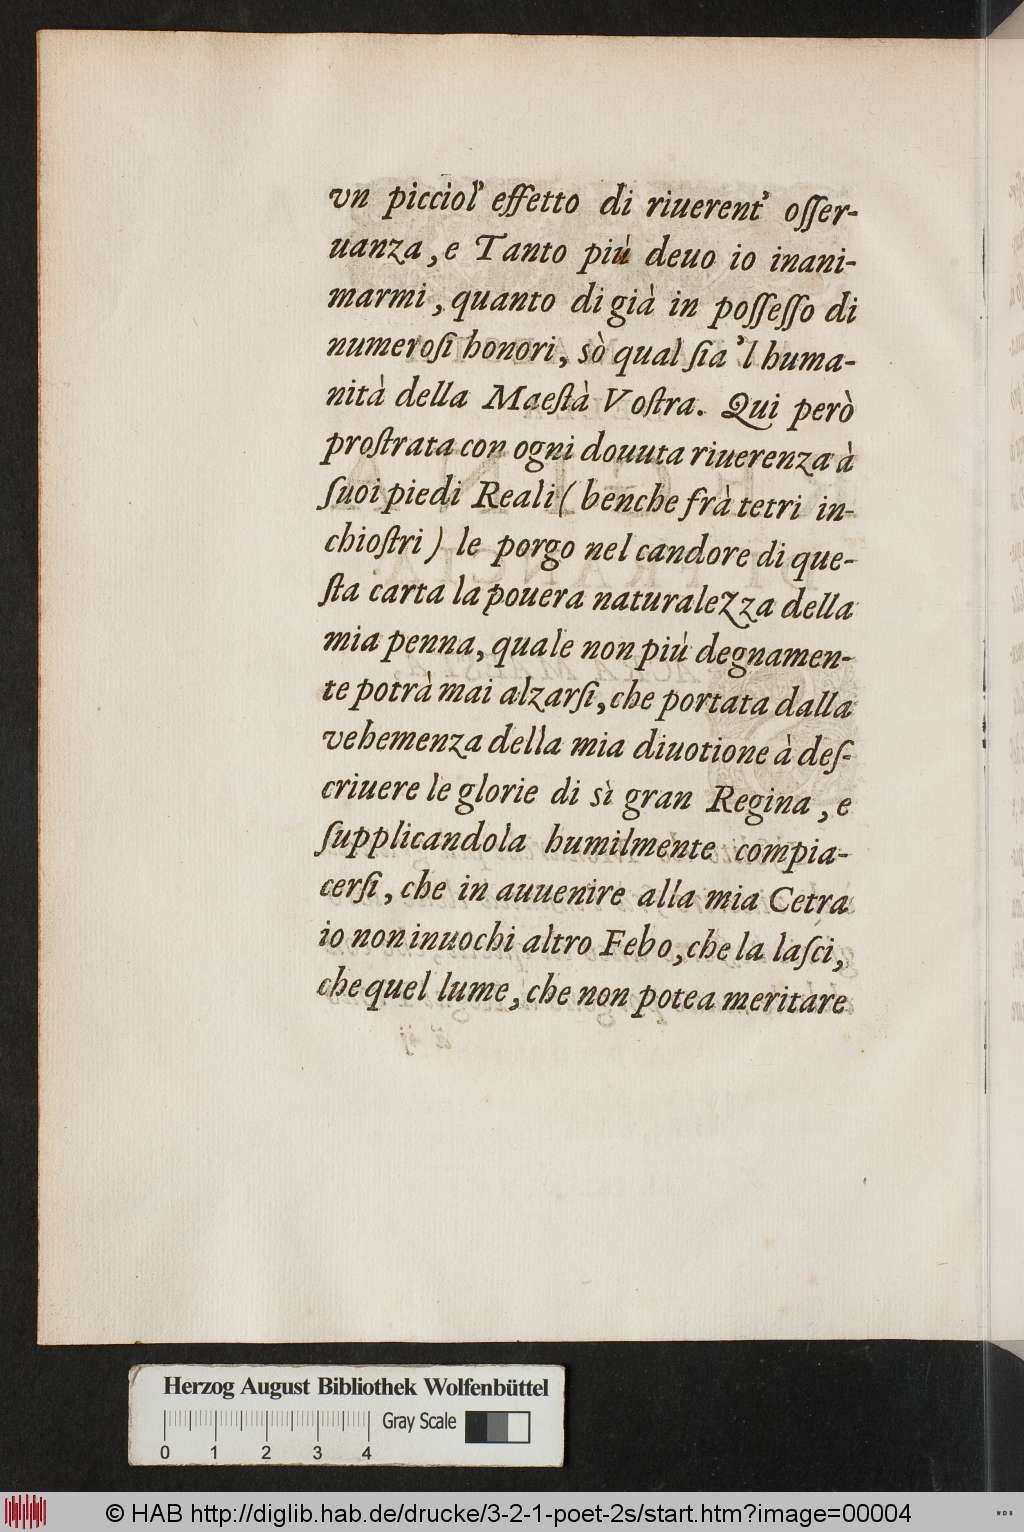 vn picciol' effetto di riuerent' oſſer-
uanza, e Tanto più deuo io inani-
marmi, quanto di già in poſſeſſo di
numeroſi honori, sò qual ſia 'l huma-
nità della Maeſtà Voſtra. Qui però
proſtrata con ogni douuta riuerenza à
ſuoi piedi Reali (benche frà tetri in-
chioſtri) le porgo nel candore di que-
ſta carta la pouera naturalezza della
mia penna, quale non più degnamen-
te potrà mai alzarſi, che portata dalla
vehemenza della mia diuotione à deſ-
criuere le glorie di sì gran Regina, e
ſupplicandola humilmente compia-
cerſi, che in auuenire alla mia Cetra
io non inuochi altro Febo, che la laſci,
che quel lume, che non potea meritare
Herzog August Bibliothek Wolfenbüttel
Gray Scale
0 1 2 3 4
© HAB http://diglib.hab.de/drucke/3-2-1-poet-2s/start.htm?image=00004